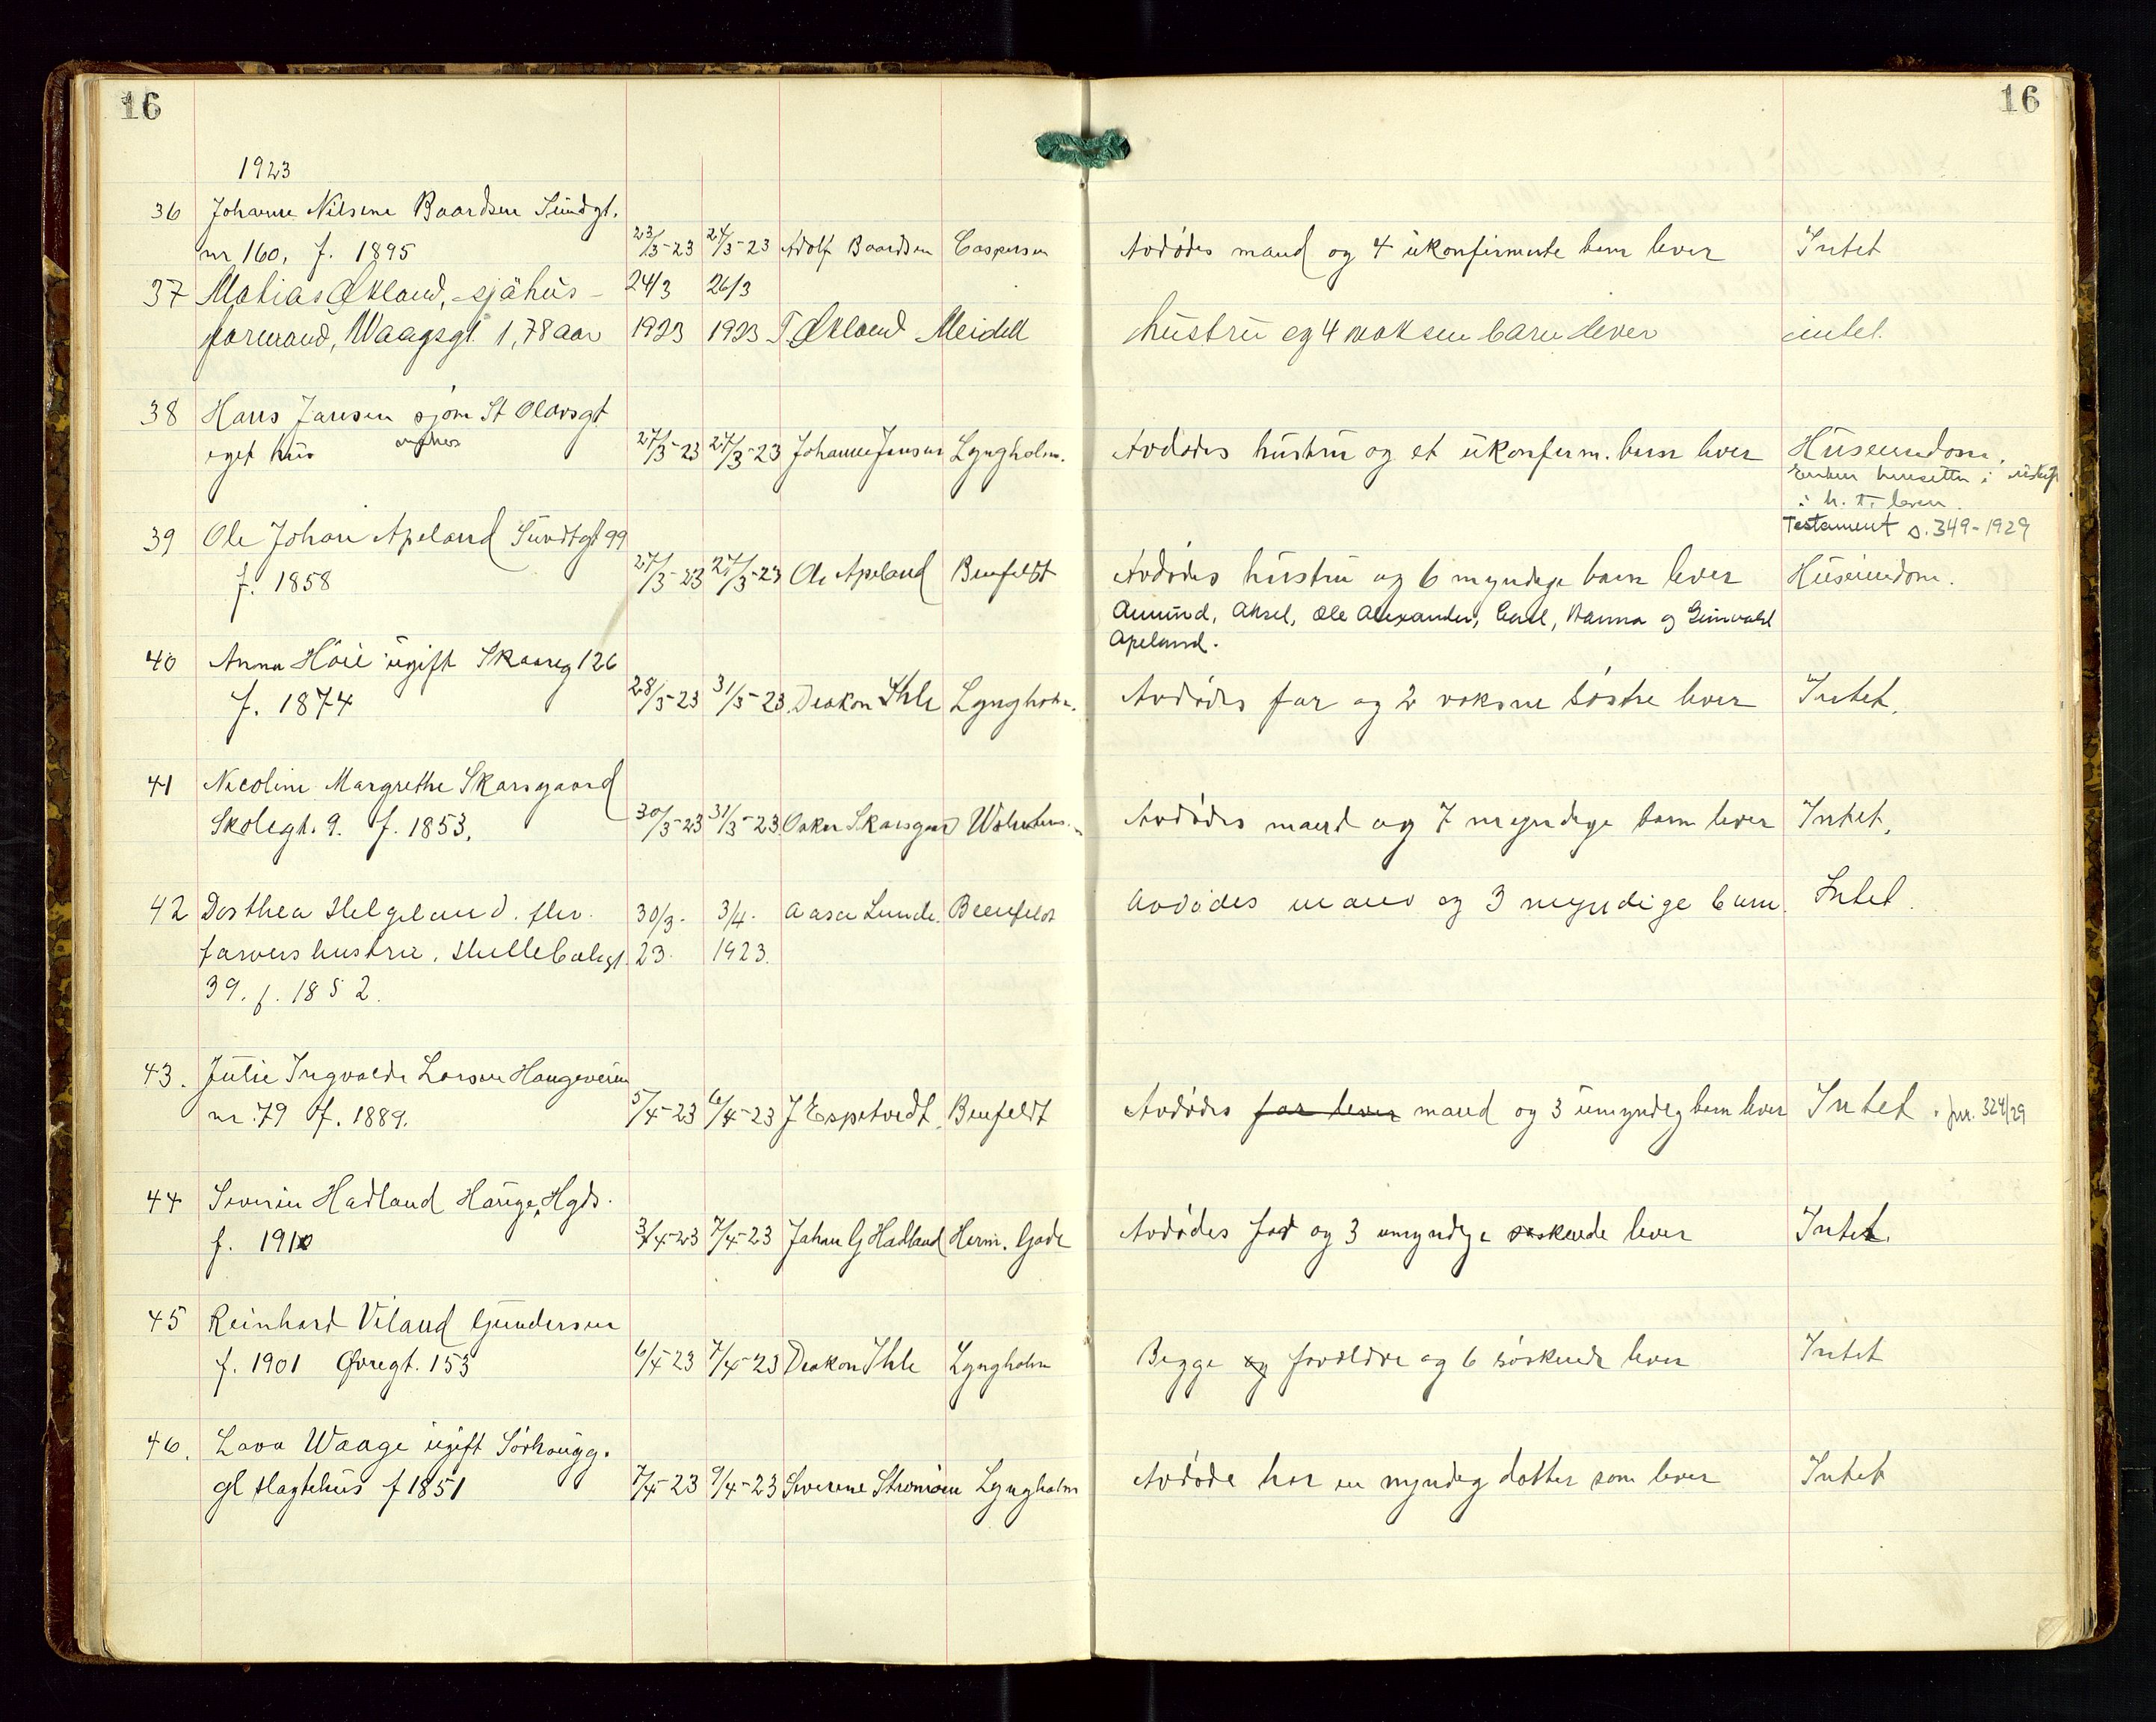 16
16
1923
36 Johanne Nilsine Baardsen Sundgt.
nr 160, f. 1895 23/3-23 24/3-23 Adolf Baardsen Caspersen Avdødes mand og 4 ukonfirmerte barn lever Intet
37 Matias Økland, sjøhus- 24/3 26/3
formand, Waagsgt 1, 78 aar 1923 1923 T. Økland Meidell hustru og 4 voksen barn lever intet.
38 Hans Jansen sjøm St Olavsgt
eget hus 27/3-23 27/3-23 Johanne Jansen Lyngholm. Avdødes hustru og et ukonfirm. barn lever Huseiendom.
Enken hensitter i uskifte
Testament s. 349-1929
39 Ole Johan Apeland Sundtgt 99
f. 1858 27/3-23 27/3-23 Ole Apeland Benfeldt Avdødes hustru og 6 myndige barn lever Huseiendom.
Amund, Aksel, Ole Alexander, Carl, Hanna og Gunvald
Apeland.
40 Anna Høie ugift Skaareg 126
f. 1874 28/3-23 31/3-23 Deakon Ihle Lyngholm. Avdødes far og 2 voksne søstre lever Intet.
41 Nicoline Margrethe Skarsgaard
Skolegt. 9. f. 1853. 30/3-23 31/3-23 Oskar Skarsgard Avdødes mand og 7 myndige barn lever Intet.
42 Dorthea Helgeland. 30/3- 3/4- Aasa Lunde. Benfeldt Avdødes mand og 3 myndige barn. Intet.
farvers hustru. 23. 1923.
39. f. 1852.
43. Julie Ingvalda Larsen Haugeveien
nr. 79 f. 1889. 5/4-23 6/4-23 J Espetvedt. Benfeldt Avdødes far lever mand og 3 umyndig barn lever Intet. jnr. 324/29
44 Severin Hadland Hauge, Hgds.
f. 1910 3/4-23 7/4-23 Johan G Hadland Herm. Gade Avdødes far og 3 umyndige søskende lever Intet.
45 Reinhard Viland Gundersen
f. 1901 Øvregt. 153 6/4-23 7/4-23 Deakon Ihle Lyngholm Begge og forældre og 6 søskende lever Intet
46. Lava Waage ugift Sørhaugg.
gl slagtehus f 1851 7/4-23 9/4-23 Severine Lyngholm Avdøde har en myndig datter som lever Intet